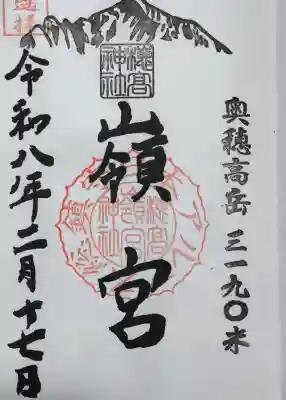 奥穂高岳 三一九〇米
穂高
神社
嶺宮
穂高
嶺宮
神社
令和八年二月十七日